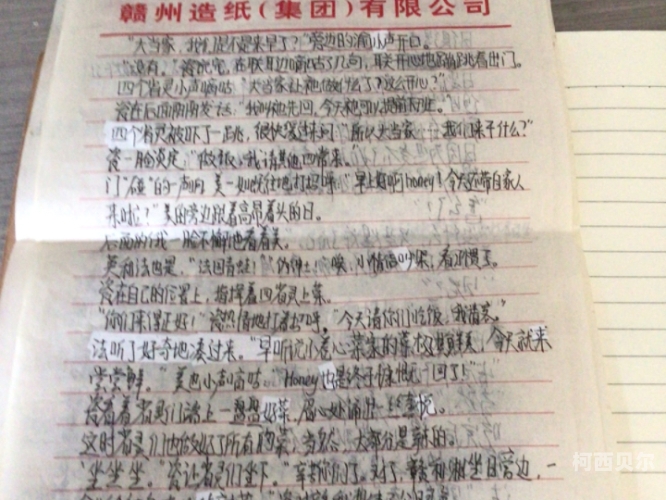 赣州造纸(集团)有限公司
"大当家，我们是不是来早了？"旁边的渝小声开口。
"没有。"瓷说完，在联耳边嘀咕了几句，联开心地蹦跳着出门。
四个省灵小声嘀咕："大当家让他做什么了？这么开心？"
瓷在后面幽幽发话："我叫他先回，今天他可以提前下班。"
四个省灵被吓了一跳，很快笑过来问："所以大当家 我们来干什么？"
瓷一脸淡定："做饭，我请其他四常来。"
门"碰"的一声开 美一如既往地打招呼："早上好啊honey！今天还带自家人
来啦？"美的旁边跟着高昂着头的日。
后面的俄一脸不懈地看着美。
英和法也是，"法国青蛙！""伪绅士。"唉，小情侣吵架，看习惯了。
瓷在自己的位置上，指挥着四省灵上菜。
"你们来得正好！"瓷热情地打着招呼，"今天请你们吃饭，我请客。"
法听了好奇地凑过来。"早听说小卷心菜家的菜极其鲜美，今天就来
尝尝鲜。"美也小声嘀咕。"Honey也是终于慷慨一回了！"
瓷看着省灵们端上一盘盘好菜，眉心处涌出一丝喜悦。
这时省灵们也做好了所有的菜，当然，大部分是辣的。
"坐坐坐。"瓷让省灵们坐下。"辛苦你们了。对了，赣和湘坐日旁边，一
柯西贝尔